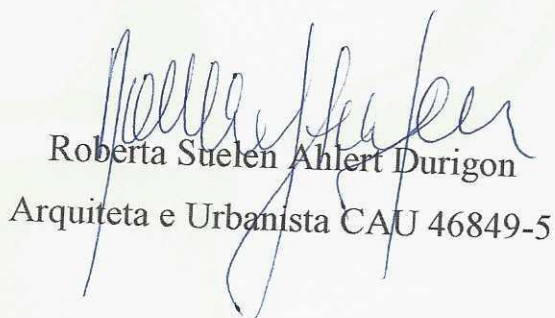 Roberta Suelen Ahlert Durigon
Arquiteta e Urbanista CAU 46849-5